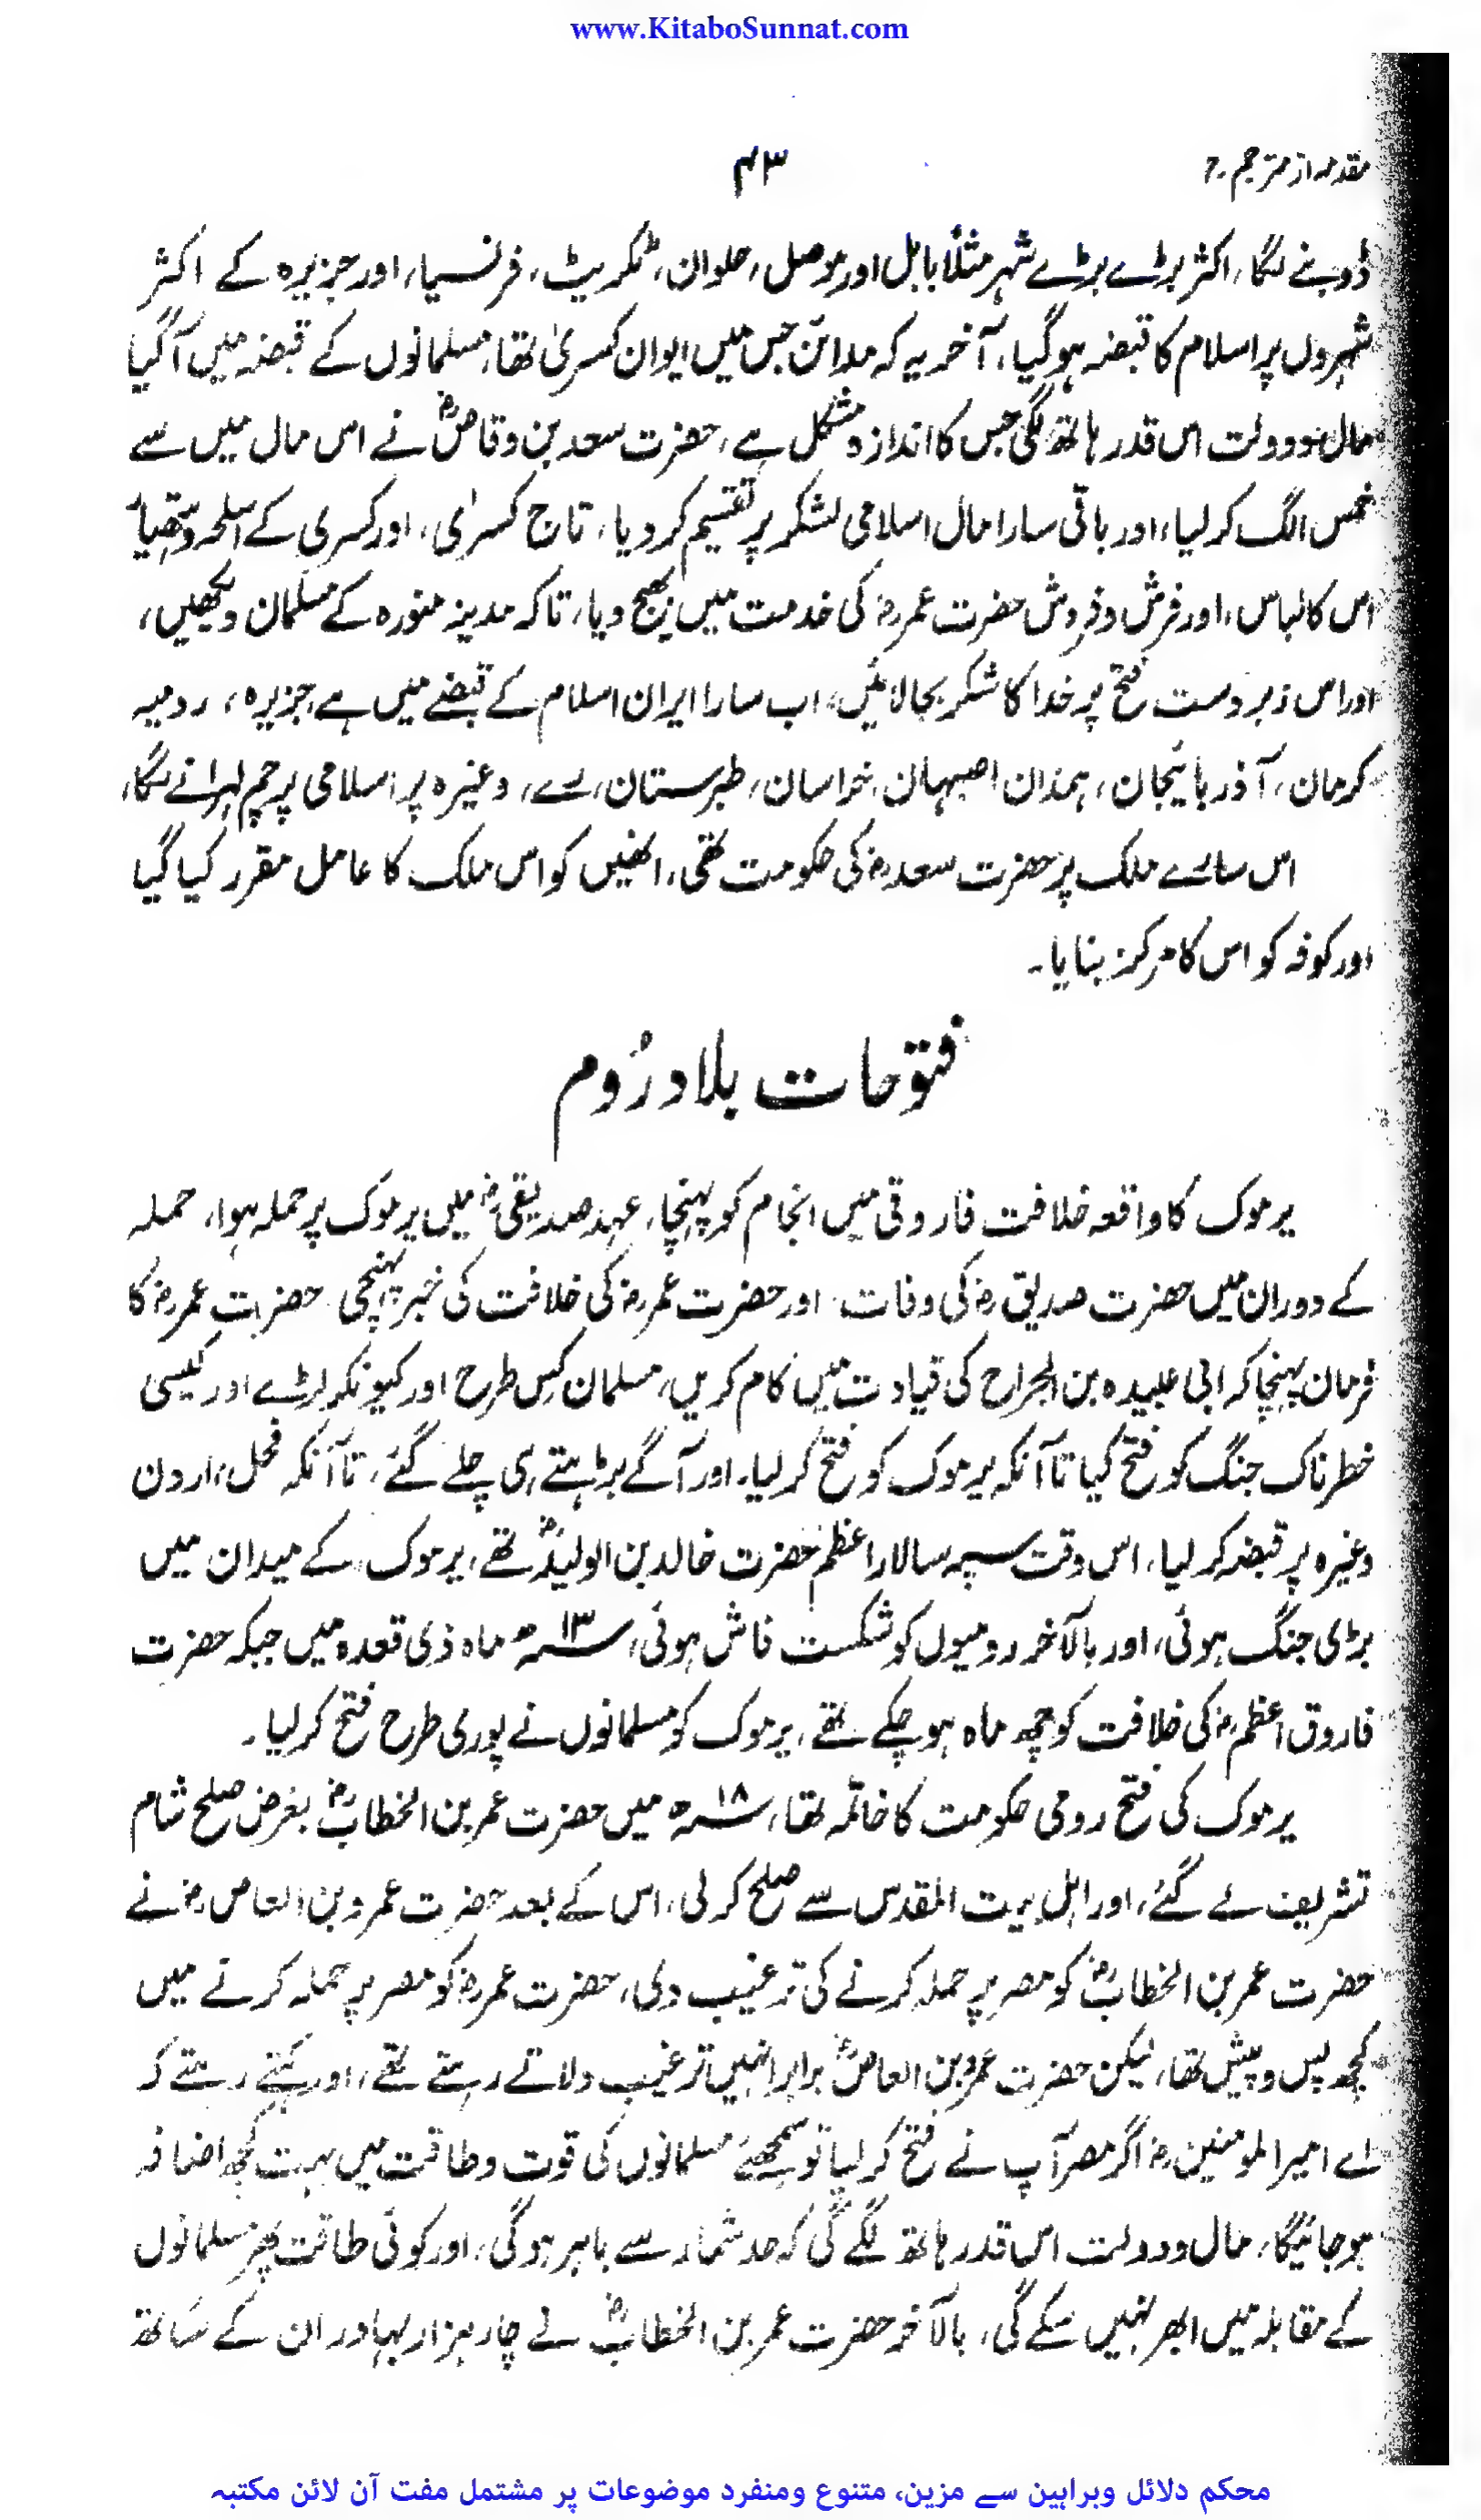 www.KitaboSunnat.com
مقدمہ از مترجم
۴۳
ڈوبنے لگا، اکثر بڑے بڑے شہر مثلاً بابل اور موصل، حلوان، ٹکریٹ، فرنسیا، اور جزیرہ کے اکثر
شہروں پر اسلام کا قبضہ ہوگیا، آخر یہ کہ مدائن جس میں ایوان کسریٰ تھا، مسلمانوں کے قبضہ میں آگیا
مال ودولت اس قدر ہاتھ لگی جس کا اندازہ مشکل ہے، حضرت سعد بن وقاصؓ نے اس مال میں سے
خمس الگ کرلیا، اور باقی سارا مال اسلامی لشکر پر تقسیم کردیا، تاج کسرٰی، اور کسری کے اسلحہ وہتھیا
اس کا لباس، اور فرش وفروش حضرت عمررض کی خدمت میں بھیج دیا، تاکہ مدینہ منورہ کے مسلمان دیکھیں،
اور اس زبردست فتح پر خدا کا شکر بجا لائیں، اب سارا ایران اسلام کے قبضے میں ہے، جزیرہ، ردمیہ
کرمان، آذر بائیجان، ہمذان اصبہان، خراسان، طبرستان، رے، وغیرہ پر اسلامی پرچم لہرانے لگا،
اس سارے ملک پر حضرت سعدرض کی حکومت تھی، انھیں کو اس ملک کا عامل مقرر کیا گیا
اور کوفہ کو اس کا مرکز بنایا۔
فتوحات بلاد رُوم
یرموک کا واقعہ خلافت فاروقی میں انجام کو پہنچا، عہد صدیقیرض میں یرموک پر حملہ ہوا، حملہ
کے دوران میں حضرت صدیق رض کی وفات اور حضرت عمررض کی خلافت کی خبر پہنچی حضرت عمررض کا
فرمان پہنچا کہ ابی عبیدہ بن الجراح کی قیادت میں کام کریں، مسلمان کس طرح اور کیونکر لڑے اور کیسی
خطرناک جنگ کو فتح کیا تا آنکہ یرموک کو فتح کرلیا۔ اور آگے بڑہتے ہی چلے گئے، تا آنکہ فحل، اردن
وغیرہ پر قبضہ کرلیا، اس وقت سپہ سالار اعظم حضرت خالد بن الولیدؓ تھے، یرموک کے میدان میں
بڑی جنگ ہوئی، اور بالآخر رومیوں کو شکست فاش ہوئی، ۱۳ھ ماہ ذی قعدہ میں جبکہ حضرت
فاروق اعظمرض کی خلافت کو چھ ماہ ہوچکے تھے، یرموک کو مسلمانوں نے پوری طرح فتح کرلیا۔
یرموک کی فتح رومی حکومت کا خاتمہ تھا، ۱۸ھ میں حضرت عمر بن الخطابؓ بغرض صلح شام
تشریف لے گئے، اور اہل بیت المقدس سے صلح کرلی، اس کے بعد حضرت عمرو بن العاص رض نے
حضرت عمر بن الخطابؓ کو مصر پر حملہ کرنے کی ترغیب دی، حضرت عمررض کو مصر پر حملہ کرنے میں
کچھ پس وپیش تھا، لیکن حضرت عمرو بن العاصؓ برابر انہیں ترغیب دلاتے رہتے تھے، اور کہتے رہتے کہ
اے امیر المومنین رض اگر مصر آپ نے فتح کرلیا تو سمجھئے مسلمانوں کی قوت وطاقت میں بہت کچھ اضافہ
ہوجائیگا، مال ودولت اس قدر ہاتھ لگے گی کہ حد شمار سے باہر ہوگی، اور کوئی طاقت پھر مسلمانوں
کے مقابلہ میں ابھر نہیں سکے گی، بالآخر حضرت عمر بن الخطابؓ نے چار ہزار بہادر ان کے ساتھ
محکم دلائل وبراہین سے مزین، متنوع ومنفرد موضوعات پر مشتمل مفت آن لائن مکتبہ